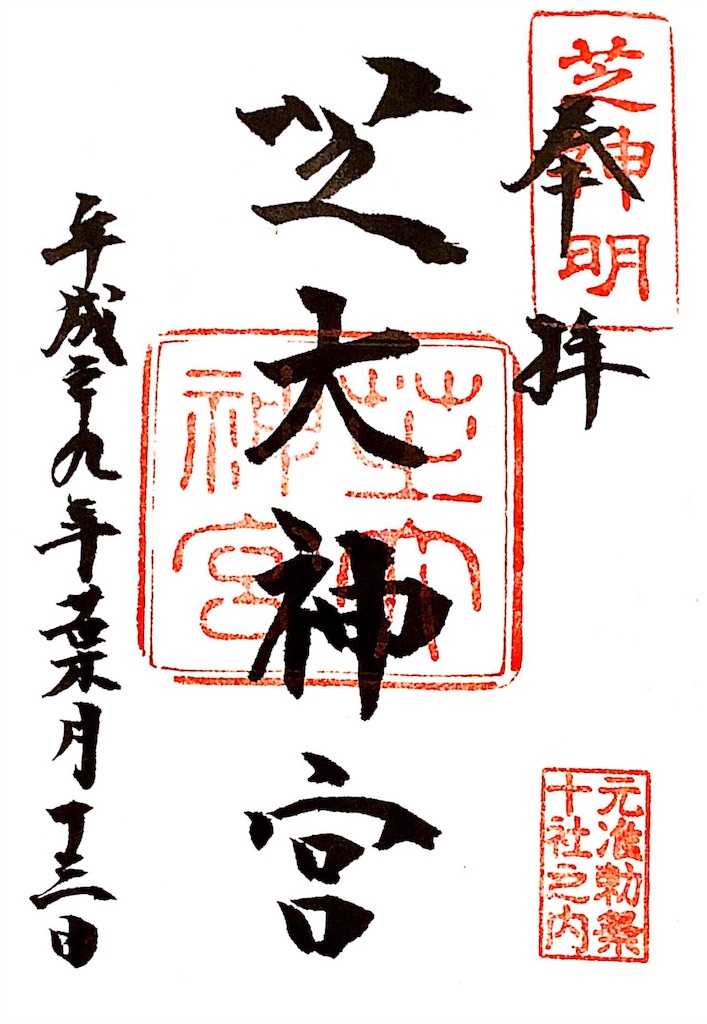 芝神明
奉拝
元准勅祭
十社之内
芝大神宮
芝大
神宮
平成二十九年葉月十三日